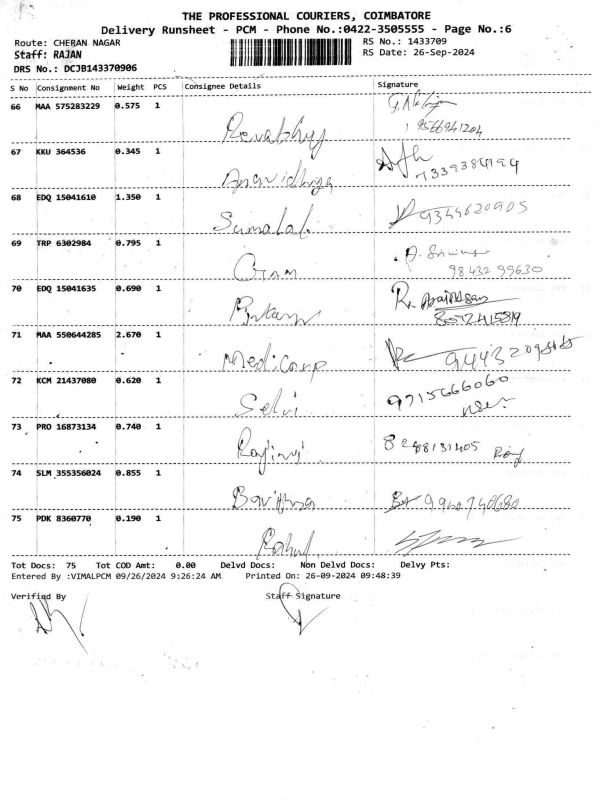 THE PROFESSIONAL COURIERS, COIMBATORE
Delivery Runsheet - PCM - Phone No.:0422-3505555 - Page No.:6
Route: CHERAN NAGAR RS No.: 1433709
Staff: RAJAN RS Date: 26-Sep-2024
DRS No.: DCJB143370906
S No Consignment No Weight PCS Consignee Details Signature
66 MAA 575283229 0.575 1
Revathy 9566941204
67 KKU 364536 0.345 1
7339384194
68 EDQ 15041610 1.350 1
9344620905
69 TRP 6302984 0.795 1
98432 99630
70 EDQ 15041635 0.690 1
71 MAA 550644285 2.670 1
Medicorp
72 KCM 21437080 0.620 1 9715666060
Selvi
73 PRO 16873134 0.740 1
8248131405
74 SLM 355356024 0.855 1
9940740680
75 PDK 8360770 0.190 1
Rahul
Tot Docs: 75 Tot COD Amt: 0.00 Delvd Docs: Non Delvd Docs: Delvy Pts:
Entered By :VIMALPCM 09/26/2024 9:26:24 AM Printed On: 26-09-2024 09:48:39
Verified By Staff Signature